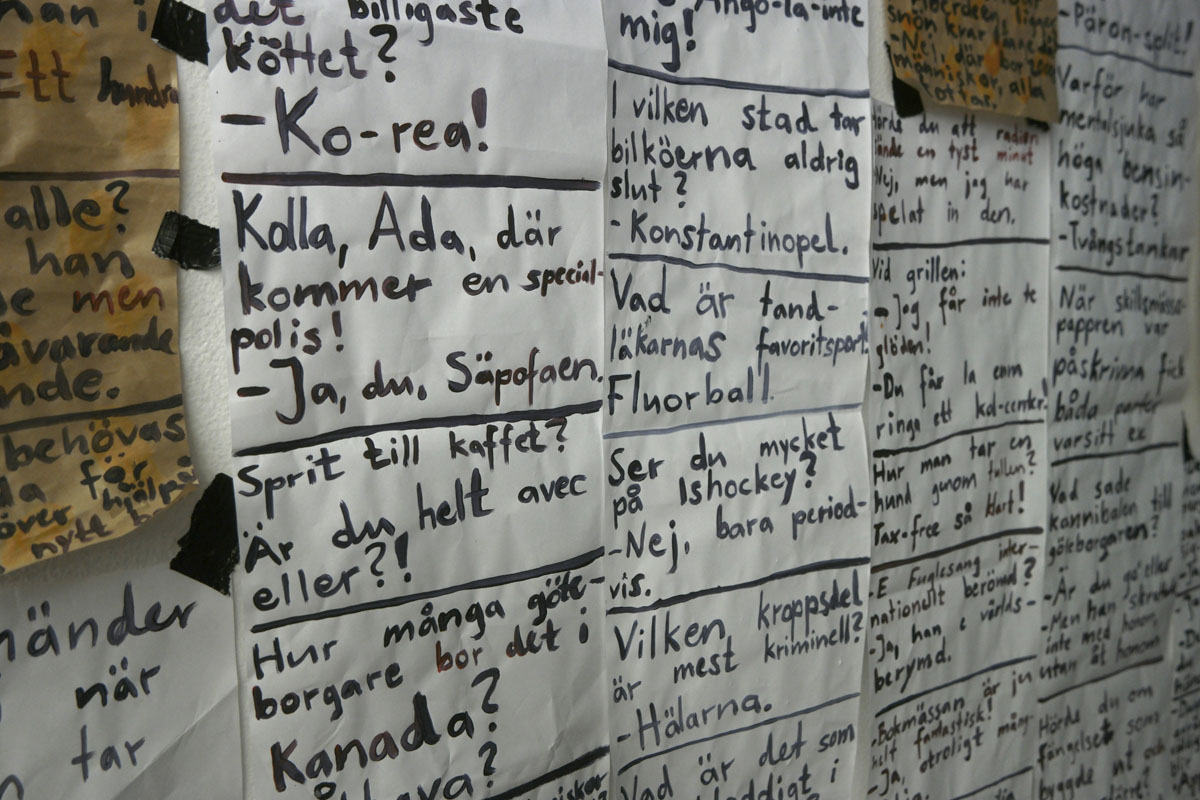 han i
Ett hundra
alle?
han
de men
åvarande
nde.
behövas
da för
över hjälpå
nytt
händer
när
tar
det billigaste
köttet?
-Ko-rea!
Kolla, Ada, där
kommer en special-
polis!
-Ja, du. Säpofaen.
Sprit till kaffet?
Är du helt avec
eller?!
Hur många göte-
borgare bor det i
Kanada?
Ango-la-inte
mig!
I vilken stad tar
bilköerna aldrig
slut?
-Konstantinopel.
Vad är tand-
läkarnas favoritsport?
Fluorball.
Ser du mycket
på Ishockey?
-Nej, bara period-
vis.
Vilken kroppsdel
är mest kriminell?
-Hälarna.
Vad är det som
i
snön
-Nej, där bor
människor, alla
Hörde du att radion
en tyst minut
Nej, men jag har
spelat in den.
Vid grillen:
-Jag får inte te
glöden!
-Du får la enn
ringa ett kol-center!
Hur man tar en
hund genom tullen?
Tax-free så klart!
-E Fuglesang inter-
nationellt berömd?
-Ja, han e världs-
berymd.
-Bokmässan är ju
helt fantastisk!
-Ja, otroligt mång-
-Päron-split!
Varför har
mentalsjuka så
höga bensin-
kostnader?
-Tvångstankar
När skillsmässo-
pappren var
påskrivna fick
båda parter
varsitt ex
Vad sade
kannibalen till
göteborgaren?
-Är du go' eller
-Men han
inte med honom
utan åt honom
Hörde du om
fängelset som
byggde ut och